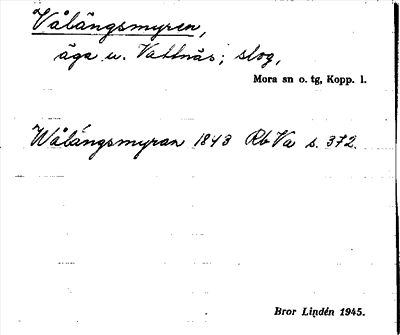 Vålängsmyren,
äga u. Vattnäs; slog,
Mora sn o. tg, Kopp. l.
Wålängsmyran 1843 Rb Va s. 372.
Bror Lindén 1945.